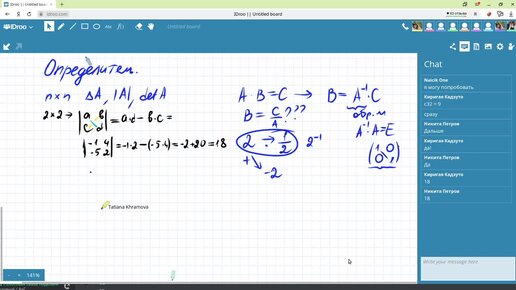 IDroo || Untitled board
idroo.com
IDroo || Untitled board
IDroo
Untitled board
Определители.
n×n ΔA, |A|, det A
2×2 → |a b c d| = a·d − b·c =
|-1 4 -5 2| = -1·2 − (-5·4) = -2+20 = 18
A B = C → B = A⁻¹·C
B = C/A ???
обр. м
A⁻¹·A = E
2 → 1/2 2⁻¹
(1 0 0 1)
+ → -2
Tatiana Khramova
141%
Chat
Naicik One
я могу попробовать
Кириган Кадзуто
с32 = 9
сразу
Никита Петров
Дальше
Кириган Кадзуто
да!
Никита Петров
Да!
Кириган Кадзуто
18
Никита Петров
18
Write your message here...